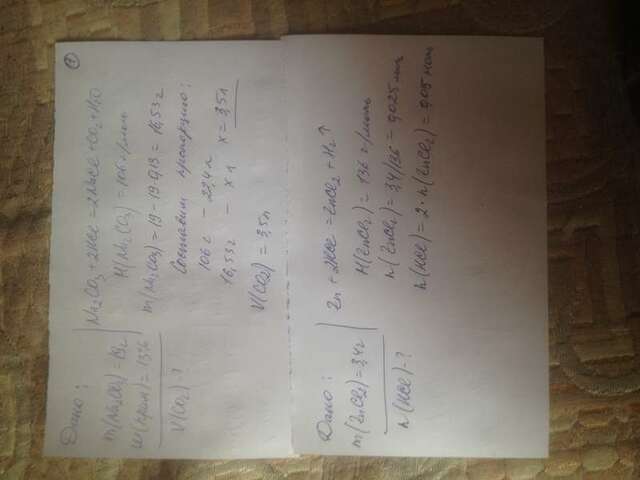 1
Дано:
m(Na2CO3) = 19г
ω(прим) = 13%
V(CO2) - ?
Na2CO3 + 2HCl = 2NaCl + CO2 + H2O
M(Na2CO3) = 106 г/моль
m(Na2CO3) = 19 - 19·0,13 = 16,53г
Составим пропорцию:
106г - 22,4л
16,53г - x л x = 3,5л
V(CO2) = 3,5л
Дано:
m(ZnCl2) = 3,4г
n(HCl) - ?
Zn + 2HCl = ZnCl2 + H2↑
M(ZnCl2) = 136 г/моль
n(ZnCl2) = 3,4/136 = 0,025 моль
n(HCl) = 2·n(ZnCl2) = 0,05 моль